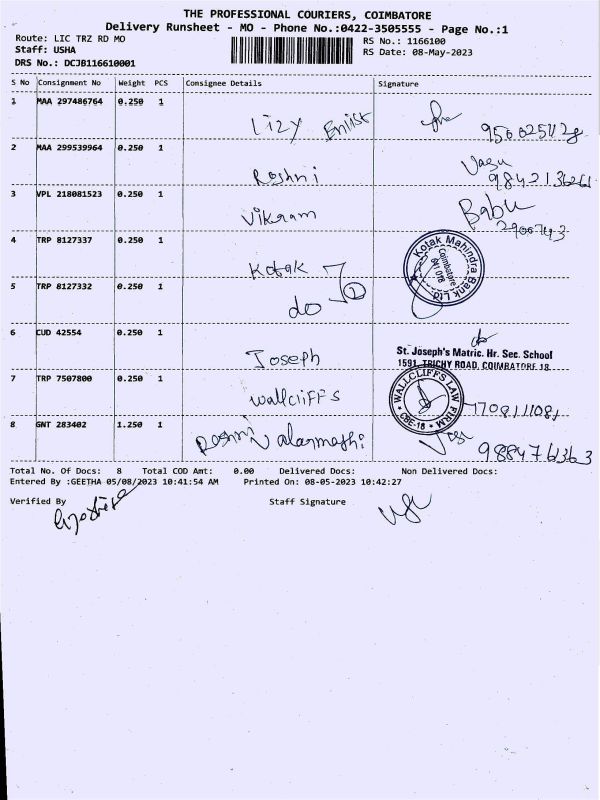 THE PROFESSIONAL COURIERS, COIMBATORE
Delivery Runsheet - MO - Phone No.:0422-3505555 - Page No.:1
Route: LIC TRZ RD MO
RS No.: 1166100
Staff: USHA
RS Date: 08-May-2023
DRS No.: DCJB116610001
S No Consignment No Weight PCS Consignee Details Signature
1 MAA 297486764 0.250 1
Lizy
2 MAA 299539964 0.250 1
Roshni Vasu
3 VPL 218081523 0.250 1
Vikram Babu
4 TRP 8127337 0.250 1
Kotak Kotak Mahindra Bank Ltd Coimbatore 641 018
5 TRP 8127332 0.250 1
do 2
6 CUD 42554 0.250 1
Joseph St. Joseph's Matric. Hr. Sec. School
1591, TRICHY ROAD, COIMBATORE 18.
7 TRP 7507800 0.250 1
wallcliffs WALLCLIFFS LAW FIRM CBE-18
8 GNT 283402 1.250 1
Total No. Of Docs: 8 Total COD Amt: 0.00 Delivered Docs: Non Delivered Docs:
Entered By :GEETHA 05/08/2023 10:41:54 AM Printed On: 08-05-2023 10:42:27
Verified By Staff Signature